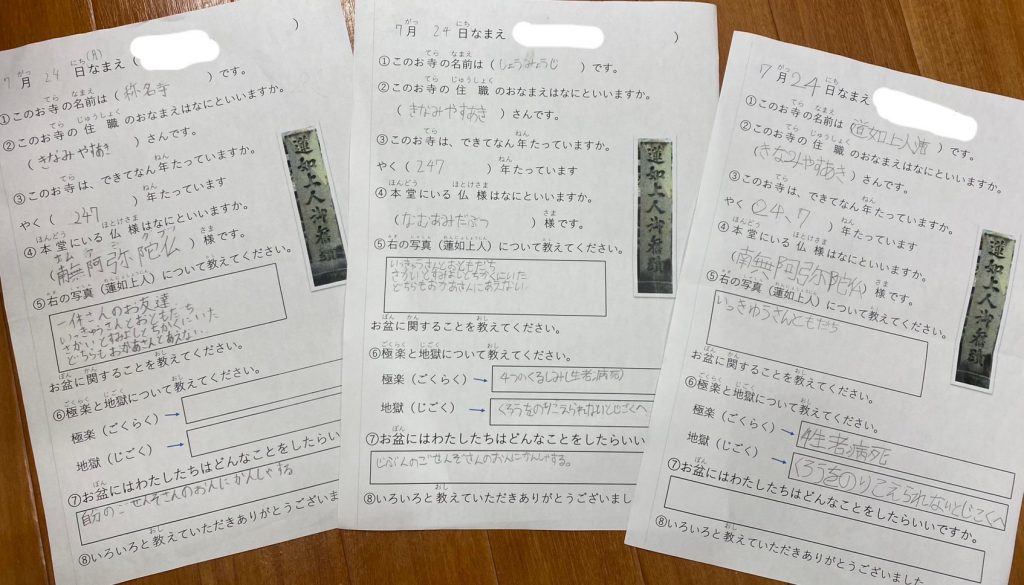 7月 24日(月)なまえ( )
①このお寺の名前は(称名寺 )です。
②このお寺の住職のおなまえはなにといいますか。
(きなみやすあき )さんです。
③このお寺は、できてなん年たっていますか。
やく( 247 )年たっています
④本堂にいる仏様はなにといいますか。
(南無阿弥陀仏 )様です。
⑤右の写真(蓮如上人)について教えてください。
一休さんのお友達
いっきゅうさんとおともだち
さかいとすみよしとちかくにいた
どちらもおかあさんとあえない。
お盆に関することを教えてください。
⑥極楽と地獄について教えてください。
極楽(ごくらく)→
地獄(じごく)→
⑦お盆にはわたしたちはどんなことをしたらいい
自分のごせんぞさんのお人にかんしゃする
⑧いろいろと教えていただきありがとうございま
蓮如上人御着頭
7月 24日なまえ( )
①このお寺の名前は(しょうみょうじ )です。
②このお寺の住職のおなまえはなにといいますか。
(きなみやすあき )さんです。
③このお寺は、できてなん年たっていますか。
やく(247 )年たっています
④本堂にいる仏様はなにといいますか。
(なむあみだぶつ )様です。
⑤右の写真(蓮如上人)について教えてください。
いっきゅうさんとおともだち
さかいとすみよしとちかくにいた
どちらもおかあさんにあえない
お盆に関することを教えてください。
⑥極楽と地獄について教えてください。
極楽(ごくらく)→ 4つのくるしみ(生老病死)
地獄(じごく)→ くろうをのりこえられないとじごくへ
⑦お盆にはわたしたちはどんなことをしたらいい
じぶんのごせんぞさんのお人にかんしゃする。
⑧いろいろと教えていただきありがとうございまし
蓮如上人御着頭
7月24日なまえ
①このお寺の名前は(蓮如上人 )です。
②このお寺の住職のおなまえはなにといいますか。
(きなみやすあき)さんです。
③このお寺は、できてなん年たっていますか。
やく(24、7 )年たっています
④本堂にいる仏様はなにといいますか。
(南無阿弥陀仏 様です。
⑤右の写真(蓮如上人)について教えてください。
いっきゅうさんともだち
お盆に関することを教えてください。
⑥極楽と地獄について教えてください。
極楽(ごくらく)→ 4生老病死
地獄(じごく)→ くろうをのりこえられないとじごくへ
⑦お盆にはわたしたちはどんなことをしたらいいですか。
⑧いろいろと教えていただきありがとうございました
蓮如上人御着頭